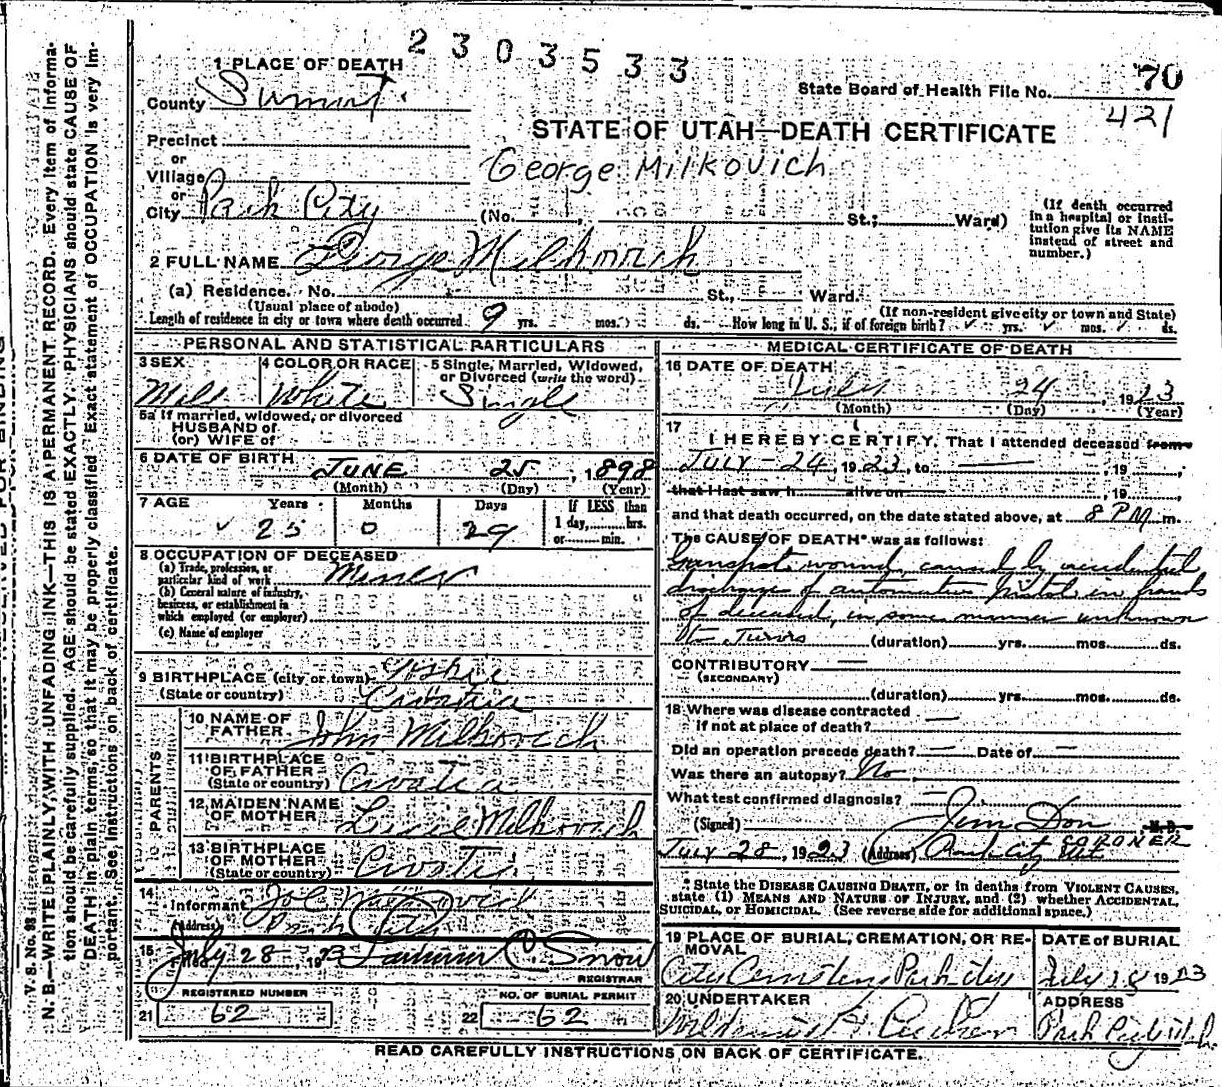 2303533
1 PLACE OF DEATH
70
State Board of Health File No.
421
County Summit.
STATE OF UTAH—DEATH CERTIFICATE
Precinct
or
Village
George Milkovich
or
City Park City (No. , St.; Ward)
(If death occurred in a hospital or institution give its NAME instead of street and number.)
2 FULL NAME George Milkovich
(a) Residence. No. St., Ward.
(Usual place of abode) (If non-resident give city or town and State)
Length of residence in city or town where death occurred 9 yrs. mos. ds. How long in U. S., if of foreign birth? yrs. mos. ds.
PERSONAL AND STATISTICAL PARTICULARS
3 SEX 4 COLOR OR RACE 5 Single, Married, Widowed, or Divorced (write the word)
White Single
5a If married, widowed, or divorced
HUSBAND of
(or) WIFE of
6 DATE OF BIRTH JUNE 25, 1898
(Month) (Day) (Year)
7 AGE Years Months Days If LESS than
25 0 29 1 day, hrs.
or min.
8 OCCUPATION OF DECEASED
(a) Trade, profession, or particular kind of work Miner
(b) General nature of industry, business, or establishment in which employed (or employer)
(c) Name of employer
9 BIRTHPLACE (city or town)
(State or country) Croatia
PARENTS
10 NAME OF FATHER John Milkovich
11 BIRTHPLACE OF FATHER (State or country) Croatia
12 MAIDEN NAME OF MOTHER Milkovich
13 BIRTHPLACE OF MOTHER (State or country)
14 Informant
(Address) Park City
15 July 28, 1923 C. Snow
REGISTRAR
REGISTERED NUMBER NO. OF BURIAL PERMIT
21 62 22 62
MEDICAL CERTIFICATE OF DEATH
16 DATE OF DEATH
July 24, 1923
(Month) (Day) (Year)
17 I HEREBY CERTIFY, That I attended deceased from
JULY-24, 1923, to , 19 ,
that I last saw h alive on , 19 ,
and that death occurred, on the date stated above, at 8 PM m.
The CAUSE OF DEATH* was as follows:
Gunshot wound, caused by accidental
discharge of automative pistol in hands
of deceased, in some manner unknown
to Jurors (duration) yrs. mos. ds.
CONTRIBUTORY
(SECONDARY)
(duration) yrs. mos. ds.
18 Where was disease contracted
if not at place of death?
Did an operation precede death? Date of
Was there an autopsy? No
What test confirmed diagnosis?
(Signed) Jim Don M. D.
CORONER
JULY 28, 1923 (Address) Park City Utah
* State the DISEASE CAUSING DEATH, or in deaths from VIOLENT CAUSES,
state (1) MEANS AND NATURE OF INJURY, and (2) whether ACCIDENTAL,
SUICIDAL, or HOMICIDAL. (See reverse side for additional space.)
19 PLACE OF BURIAL, CREMATION, OR REMOVAL DATE of BURIAL
City Cemetery Park City July 28 1923
20 UNDERTAKER ADDRESS
Park City Utah.
READ CAREFULLY INSTRUCTIONS ON BACK OF CERTIFICATE.
V. S. No. 98
N. B.—WRITE PLAINLY, WITH UNFADING INK—THIS IS A PERMANENT RECORD. Every item of Informa-
tion should be carefully supplied. AGE should be stated EXACTLY. PHYSICIANS should state CAUSE OF
DEATH in plain terms, so that it may be properly classified. Exact statement of OCCUPATION is very im-
portant. See instructions on back of certificate.